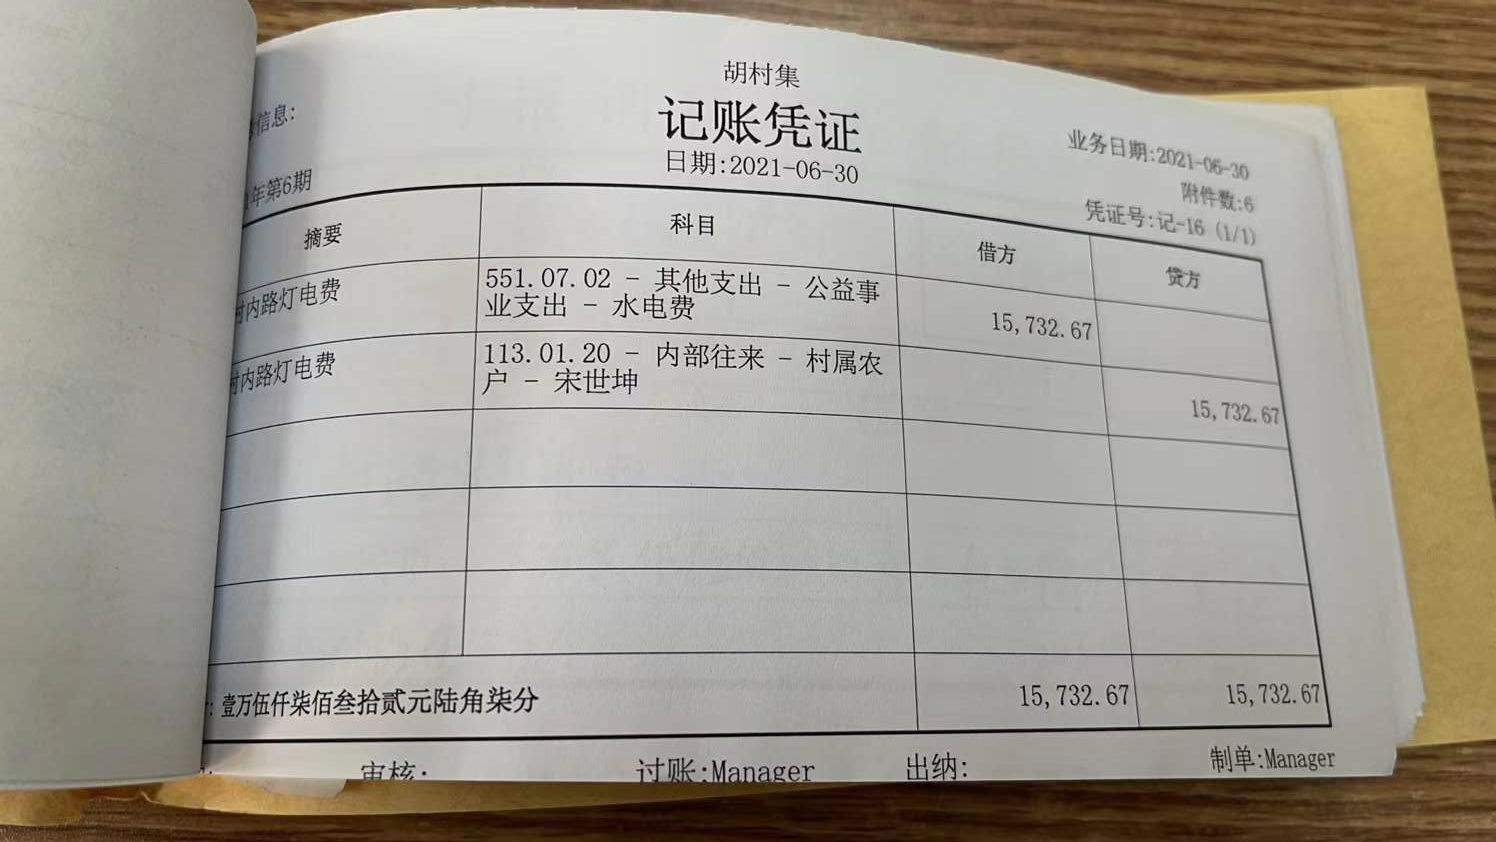 胡村集
记账凭证
信息:
日期:2021-06-30
业务日期:2021-06-30
附件数:6
年第6期
凭证号:记-16 (1/1)
摘要 科目 借方 贷方
村内路灯电费 551.07.02 - 其他支出 - 公益事
业支出 - 水电费 15,732.67
村内路灯电费 113.01.20 - 内部往来 - 村属农
户 - 宋世坤 15,732.67
: 壹万伍仟柒佰叁拾贰元陆角柒分 15,732.67 15,732.67
审核: 过账:Manager 出纳: 制单:Manager